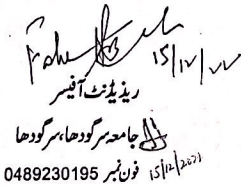 15/12/22
ریذیڈنٹ آفیسر
جامعہ سرگودھا، سرگودھا
فون نمبر 0489230195